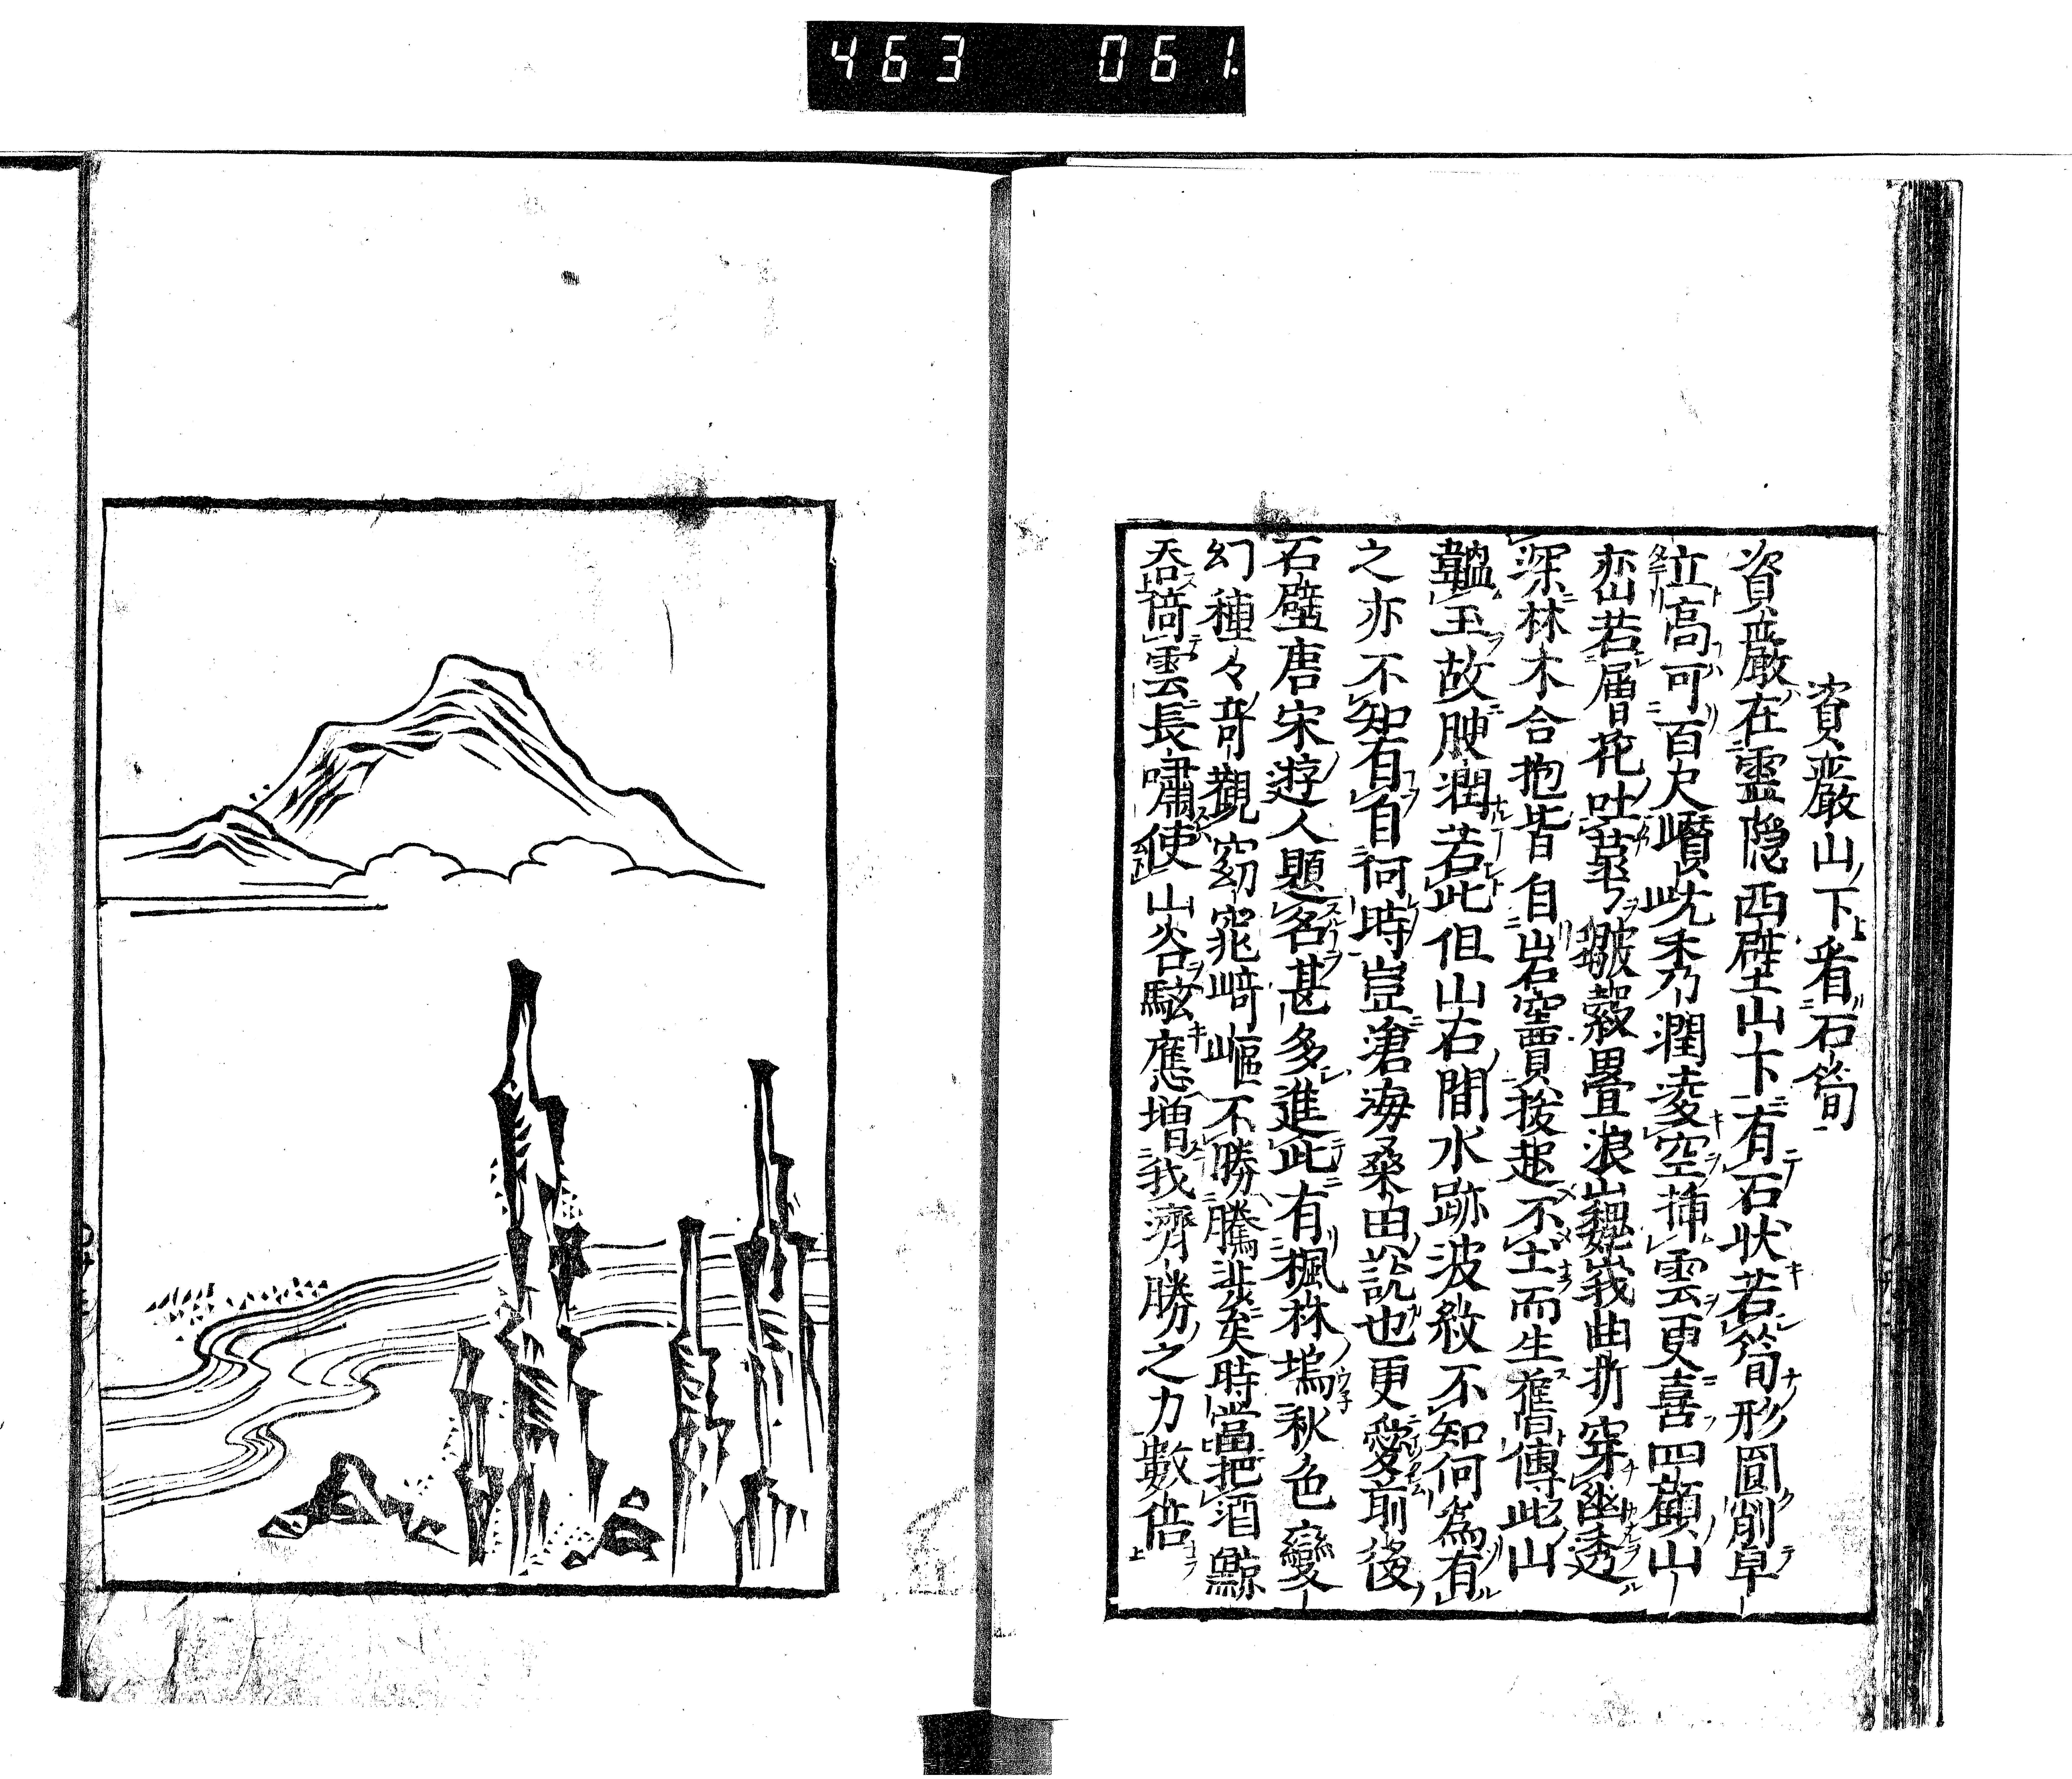 463 061
資巖山下看石筍
資巖在霊隠西壁山下有石狀若筍形圓削卓
立高可百尺巑岏秀潤凌空挿雲更喜四顧山
巒若層花吐萼皺縠疊浪巍峩曲折穿幽透
深林木合抱皆自岩竇拔起不土而生舊傳此山
韞玉故腴潤若此但山石間水跡波紋不知何為有
之亦不知有自何時豈滄海桑田説也更愛前後
石壁唐宋遊人題名甚多進此有楓林塢秋色變
幻種々竒觀窈窕崎嶇不勝騰涉矣時當把酒鯨
吞倚雲長嘯使山谷駭應増我濟勝之力數倍